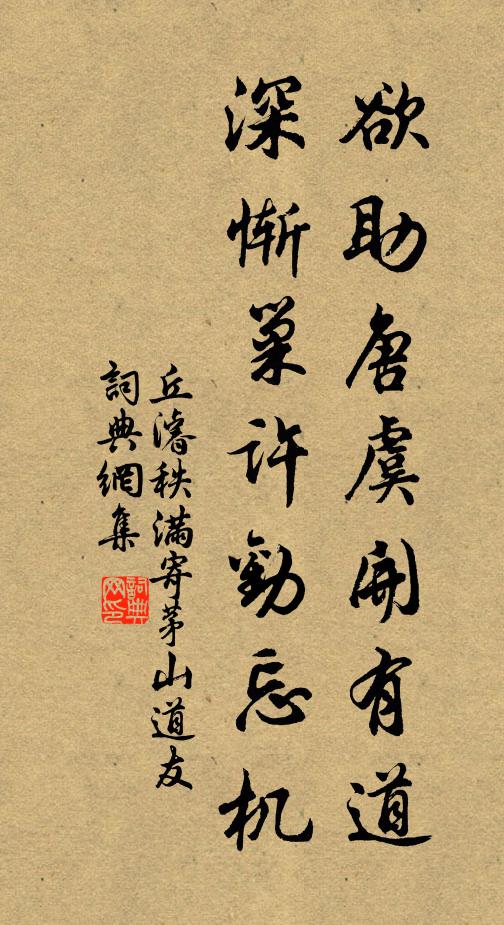 欲助唐虞開有道
深慚巢許勸忘机
丘濬秩滿寄茅山道友
詞典網集
詞典网印